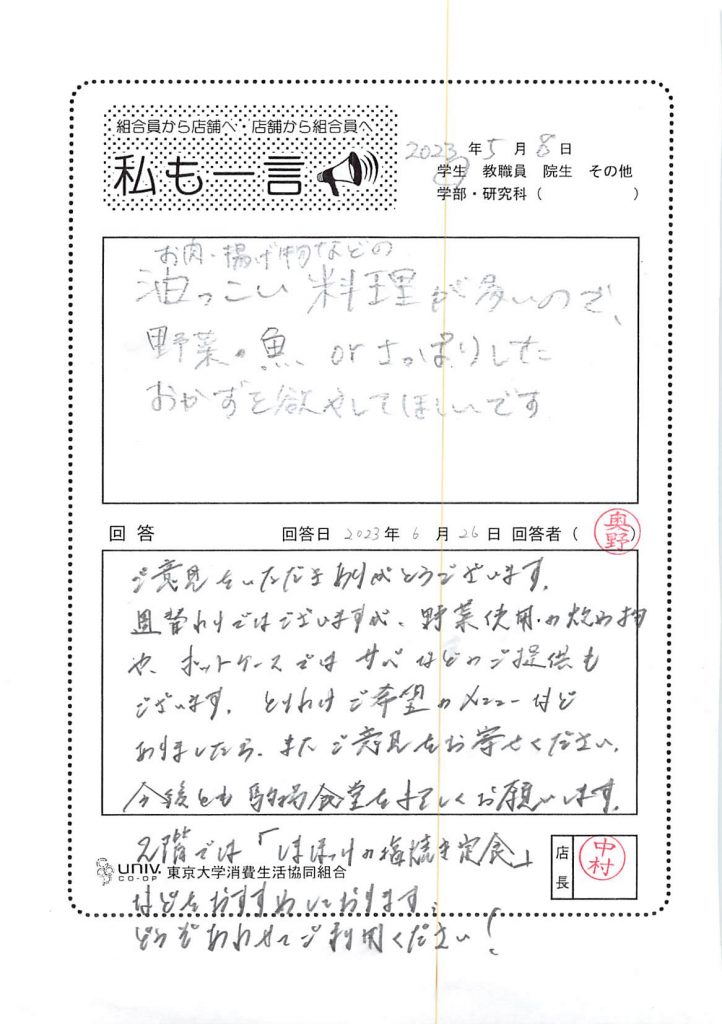 組合員から店舗へ・店舗から組合員へ
私も一言
2023年5月8日
学生 教職員 院生 その他
学部・研究科( )
お肉・揚げ物などの
油っこい料理が多いので、
野菜や魚、orさっぱりした
おかずを欲やしてほしいです
回答 回答日 2023年6月26日 回答者(奥野)
ご意見をいただきありがとうございます。
週替わりではございますが、野菜使用の炊め物
や、ホットケースではサバなどのご提供も
ございます。とりわけご希望のメニューなど
ありましたら、またご意見をお寄せください。
今後とも駒場食堂をよろしくお願いします。
2階では「しまほっけの塩焼き定食」
UNIV. CO-OP 東京大学消費生活協同組合
店長 中村
などをおすすめしております。
どうぞあわせてご利用ください!